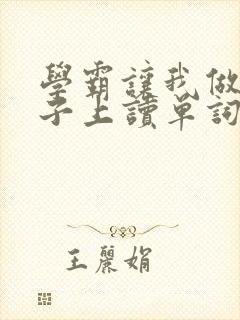 學霸讓我做
子上讀單詞
王麗娟